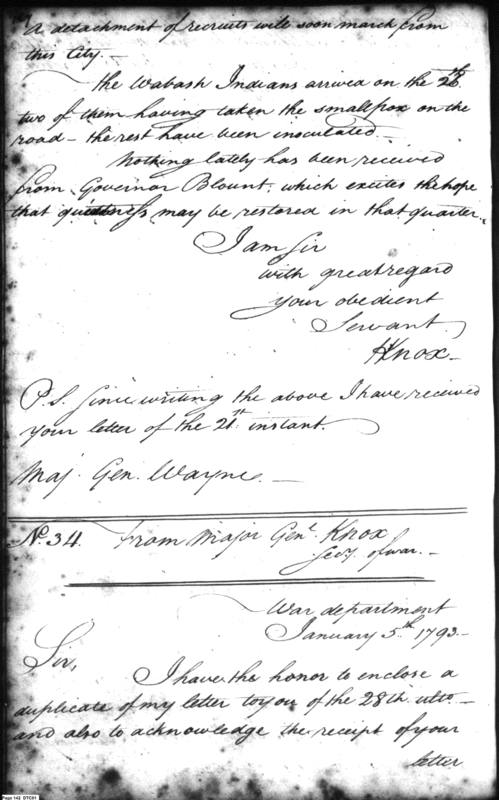 A detachment of recruits will soon march from
this City.—
the Wabash Indians arrived on the 26th.
two of them having taken the smallpox on the
road— the rest have been inoculated.—
Nothing lately has been received
from Governor Blount, which excites the hope
that quietness may be restored in that quarter.
I am Sir
with great regard
your obedient
Servant
HKnox—
P.S. Since writing the above I have received
your letter of the 21st instant.
Maj. Gen. Wayne.—
No. 34. From Major Genl. Knox
Secy. of war.—
War department
January 5th. 1793—
Sir,
I have the honor to enclose a
duplicate of my letter to you of the 28th ulto.—
and also to acknowledge the receipt of your
letter
Page 142 DTC01